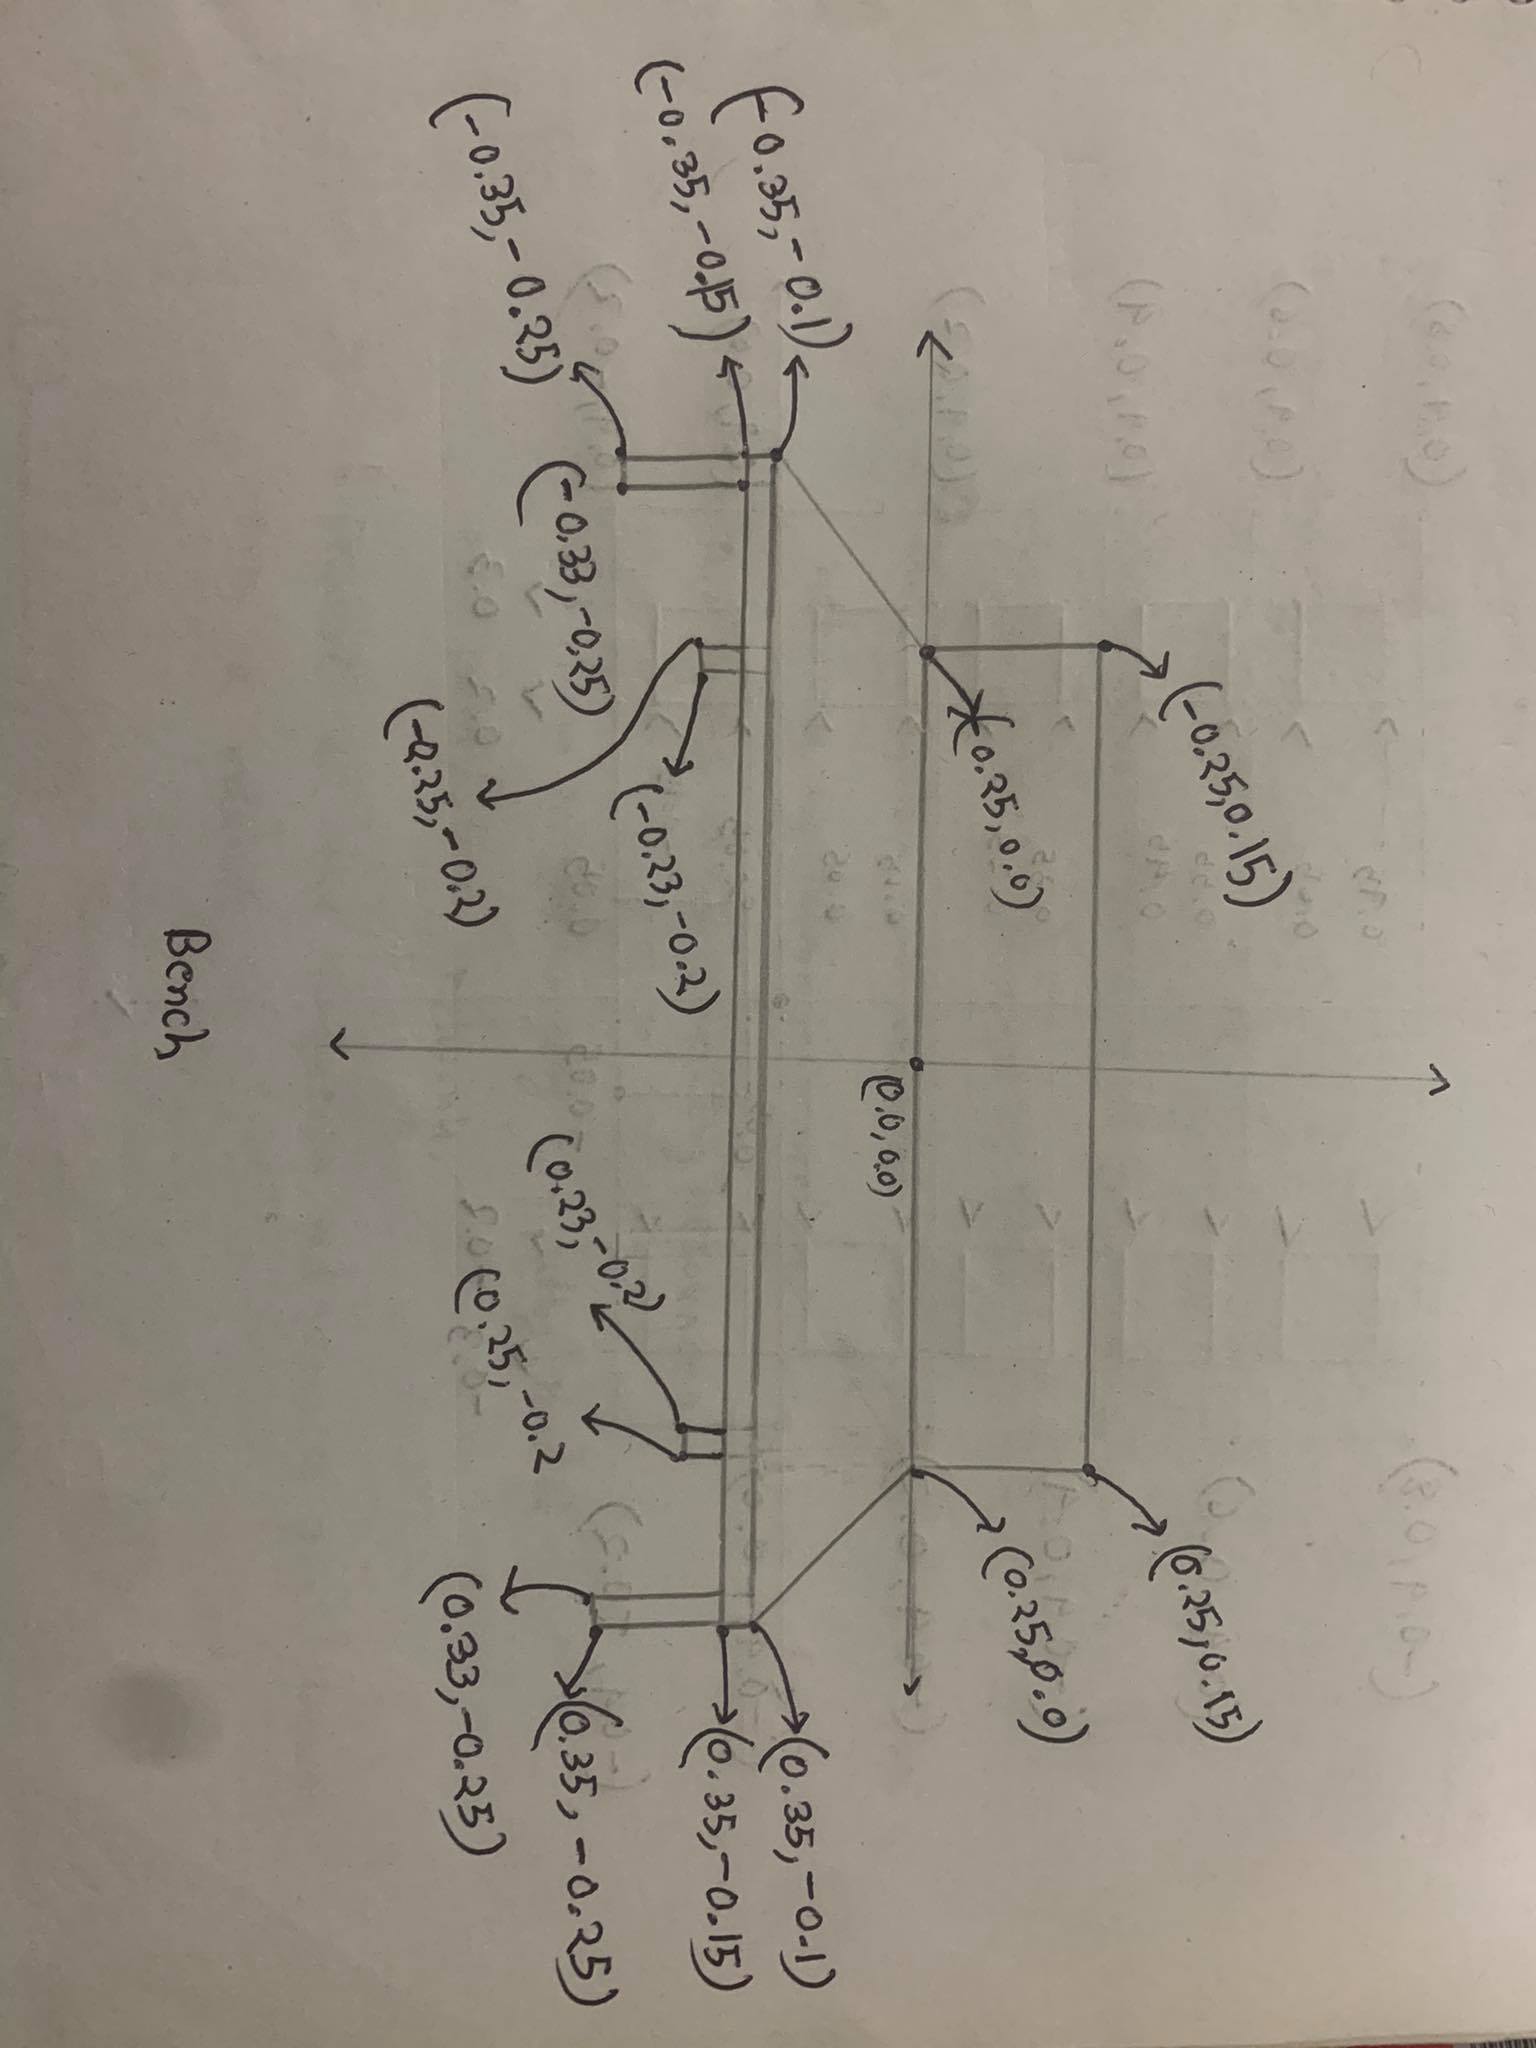 (-0.25,0.15)
(0.25,0.15)
(-0.25,0.0)
(0.25,0.0)
(0.0,0.0)
(-0.35,-0.1)
(0.35,-0.1)
(-0.35,-0.15)
(0.35,-0.15)
(-0.23,-0.2)
(0.23,-0.2)
(-0.33,-0.25)
(0.35,-0.25)
(-0.35,-0.25)
(0.25,-0.2
(-0.25,-0.2)
(0.33,-0.25)
Bench